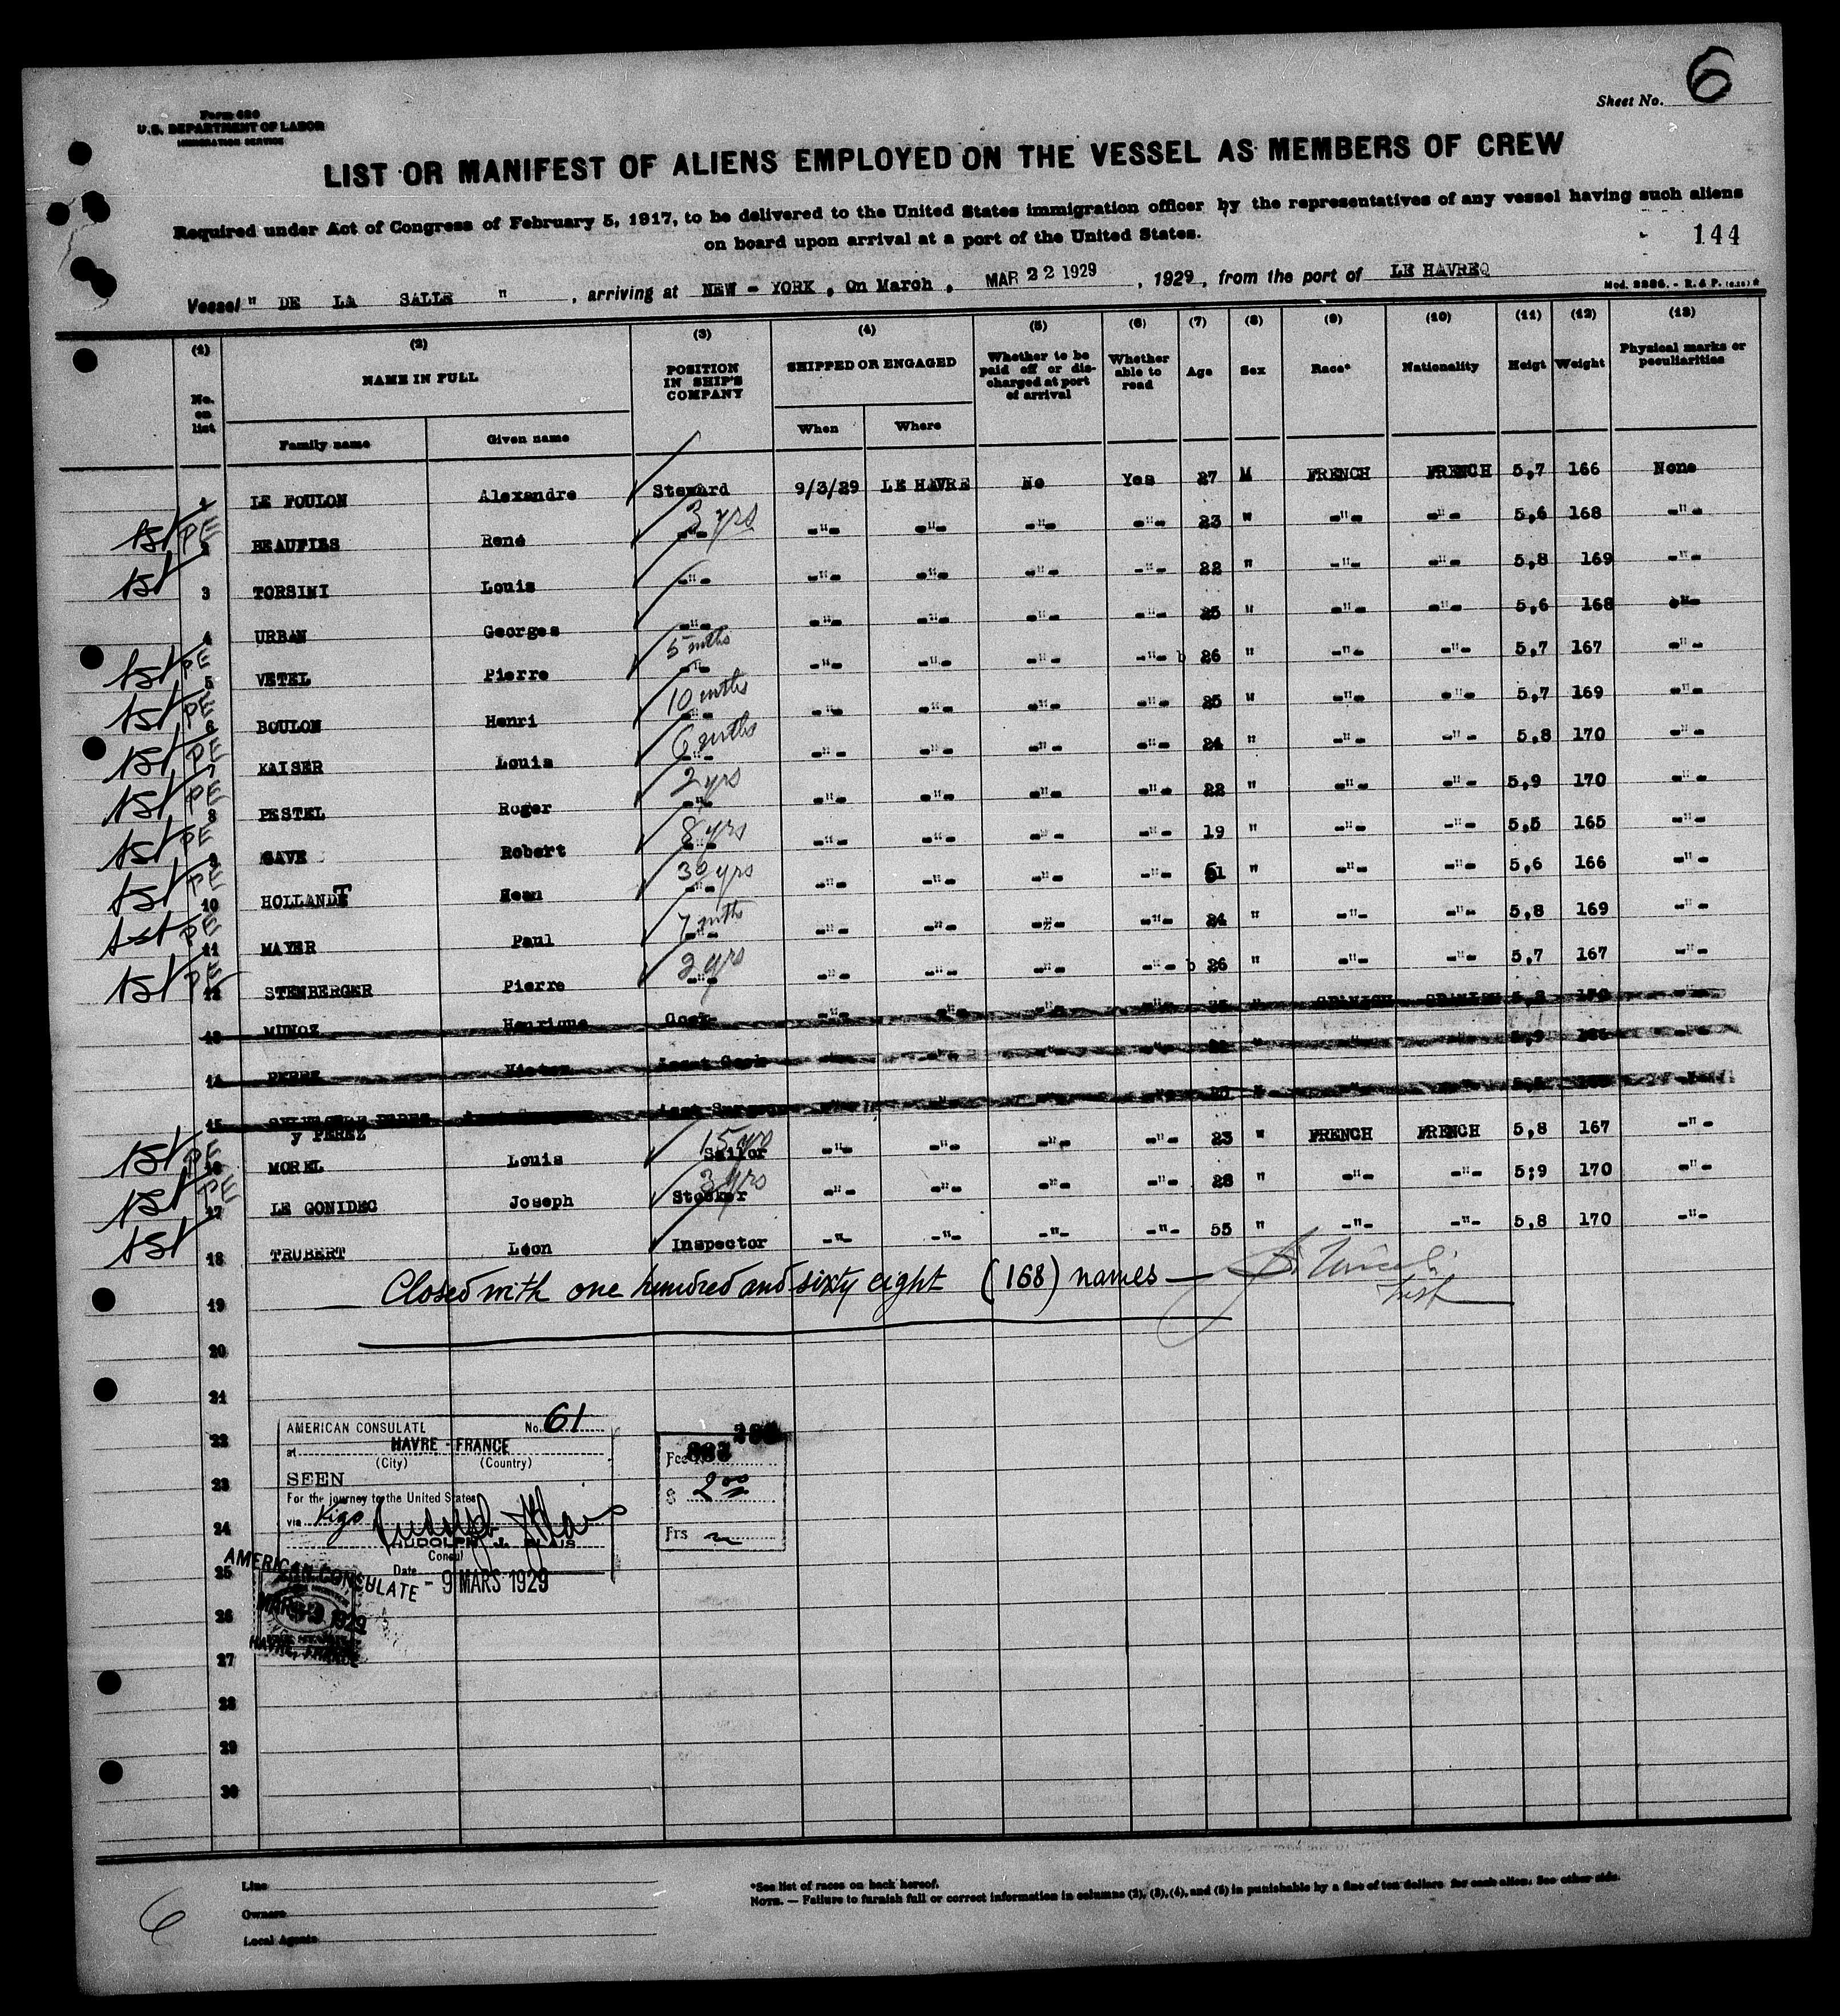 Sheet No. 6
Form 680
U.S. DEPARTMENT OF LABOR
IMMIGRATION SERVICE
LIST OR MANIFEST OF ALIENS EMPLOYED ON THE VESSEL AS MEMBERS OF CREW
Required under Act of Congress of February 5, 1917, to be delivered to the United States immigration officer by the representatives of any vessel having such aliens
on board upon arrival at a port of the United States.
144
Vessel " DE LA SALLE " , arriving at NEW - YORK , On March , MAR 22 1929 , 1929 , from the port of LE HAVRE
Mod. 2286. - R. & P.
(1) (2) (3) (4) (5) (6) (7) (8) (9) (10) (11) (12) (13)
No. on list NAME IN FULL POSITION IN SHIP'S COMPANY SHIPPED OR ENGAGED Whether to be paid off or discharged at port of arrival Whether able to read Age Sex Race* Nationality Heigt Weight Physical marks or peculiarities
Family name Given name When Where
1 LE FOULON Alexandre Steward 9/3/29 LE HAVRE No Yes 27 M FRENCH FRENCH 5,7 166 None
1st PE 2 BEAUFILS René 3 yrs -"- -"- -"- -"- -"- 23 " -"- -"- 5,6 168 -"-
1st 3 TORSINI Louis -"- -"- -"- -"- -"- 22 " -"- -"- 5,8 169 -"-
4 URBAN Georges -"- -"- -"- -"- -"- 25 " -"- -"- 5,6 168 -"-
1st PE 5 VETEL Pierre 5 mths -"- -"- -"- -"- -"- 26 " -"- -"- 5,7 167 -"-
1st PE 6 BOULON Henri 10 mths -"- -"- -"- -"- -"- 25 " -"- -"- 5,7 169 -"-
1st PE 7 KAISER Louis 6 mths -"- -"- -"- -"- -"- 24 " -"- -"- 5,8 170 -"-
1st PE 8 PESTEL Roger 2 yrs -"- -"- -"- -"- -"- 22 " -"- -"- 5,9 170 -"-
1st PE 9 GAVE Robert 8 yrs -"- -"- -"- -"- -"- 19 " -"- -"- 5,5 165 -"-
1st PE 10 HOLLANDT 30 yrs -"- -"- -"- -"- -"- 51 " -"- -"- 5,6 166 -"-
1st PE 11 MAYER Paul 7 mths -"- -"- -"- -"- -"- 24 " -"- -"- 5,8 169 -"-
1st PE 12 STENBERGER Pierre 2 yrs -"- -"- -"- -"- -"- 26 " -"- -"- 5,7 167 -"-
13 MUNOZ Henrique Cook -"- -"- -"- -"- " SPANISH SPANISH
14 PEREZ Asst Cook
15 y PEREZ
1st PE 16 MOREL Louis 15 yrs Sailor -"- -"- -"- -"- 23 " FRENCH FRENCH 5,8 167 -"-
1st PE 17 LE GONIDEC Joseph 3 yrs Stocker -"- -"- -"- -"- 28 " -"- -"- 5;9 170 -"-
1st 18 TRUBERT Léon Inspector -"- -"- -"- -"- 55 " -"- -"- 5,8 170 -"-
19 Closed with one hundred and sixty eight (168) names —
20
21
22
23
24
25
26
27
28
29
30
AMERICAN CONSULATE No. 61
at HAVRE - FRANCE
(City) (Country)
SEEN
For the journey to the United States
via Vigo
RUDOLPH J. BLAIS
Consul
Date - 9 MARS 1929
Fee
$ 2.00
Frs
AMERICAN CONSULATE
MAR 9 1929
HAVRE, FRANCE
Line
Owners
Local Agents
*See list of races on back hereof.
NOTE. — Failure to furnish full or correct information in columns (2), (3), (4), and (5) in punishable by a fine of ten dollars for each alien. See other side.
6